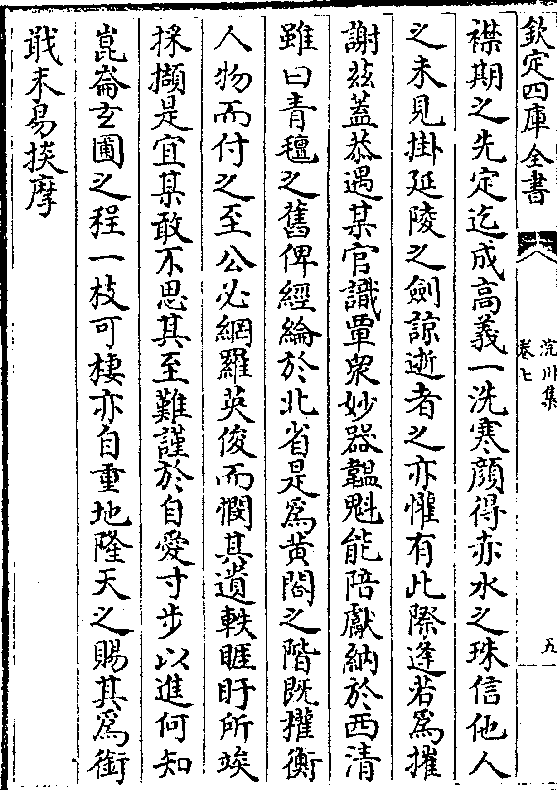 欽定四庫全書
襟期之先定迄成高義一洗寒顔得赤水之珠信他人
之未見掛延陵之劍諒逝者之亦懼有此際逢若爲摧
謝兹蓋恭遇某官識覃衆妙器韞魁能陪獻納於西清
雖曰青氊之舊俾經綸於北省是爲黄閤之階既擢衡
人物而付之至公必網羅英俊而憫其遺軼睚盱所竢
採擷是宜某敢不思其至難謹於自愛寸步以進何知
崑崙玄圃之程一枝可棲亦自重地隆天之賜其爲銜
戢未易掞摩
卷七
五